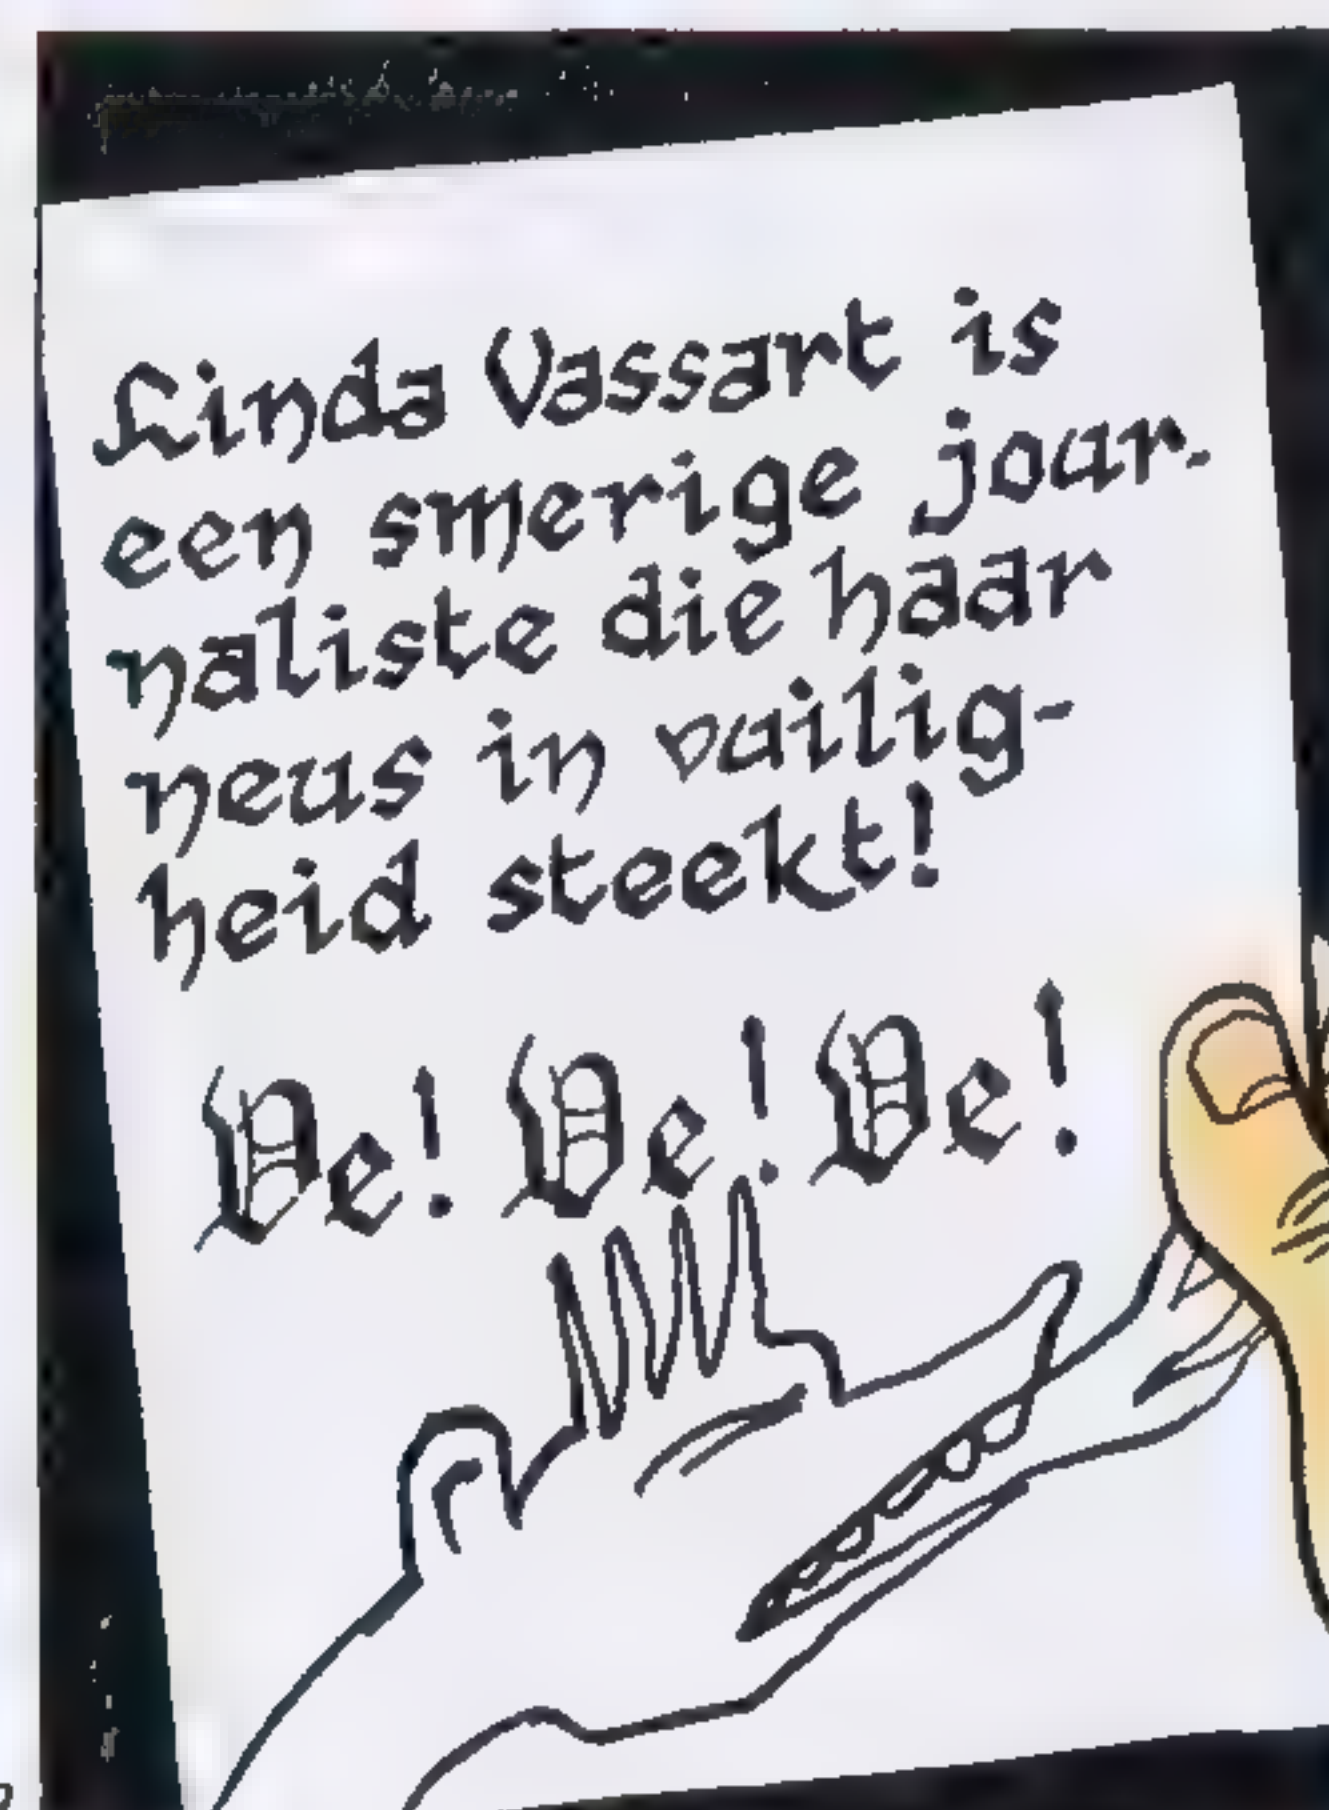 Linda Vassart is
een smerige jour-
naliste die haar
neus in vuilig-
heid steekt!
Ve! Ve! Ve!